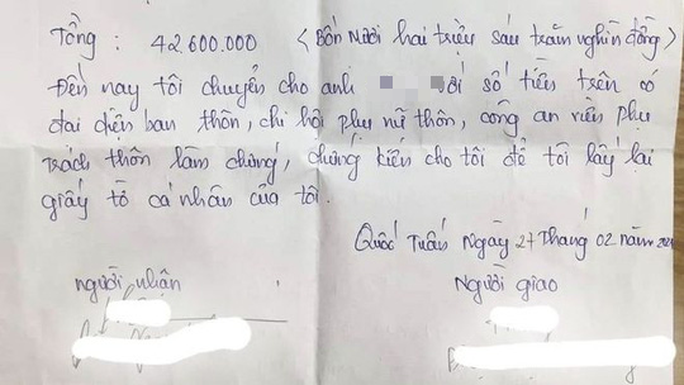 Tổng : 42.600.000 (Bốn Mươi hai triệu sáu trăm nghìn đồng)
Đến nay tôi chuyển cho anh với số tiền trên có
đại diện ban thôn, chi hội phụ nữ thôn, công an viên phụ
trách thôn làm chứng, chứng kiến cho tôi để tôi lấy lại
giấy tờ cá nhân của tôi.
Quốc Tuấn Ngày 27 Tháng 02 năm
người nhận
Người giao